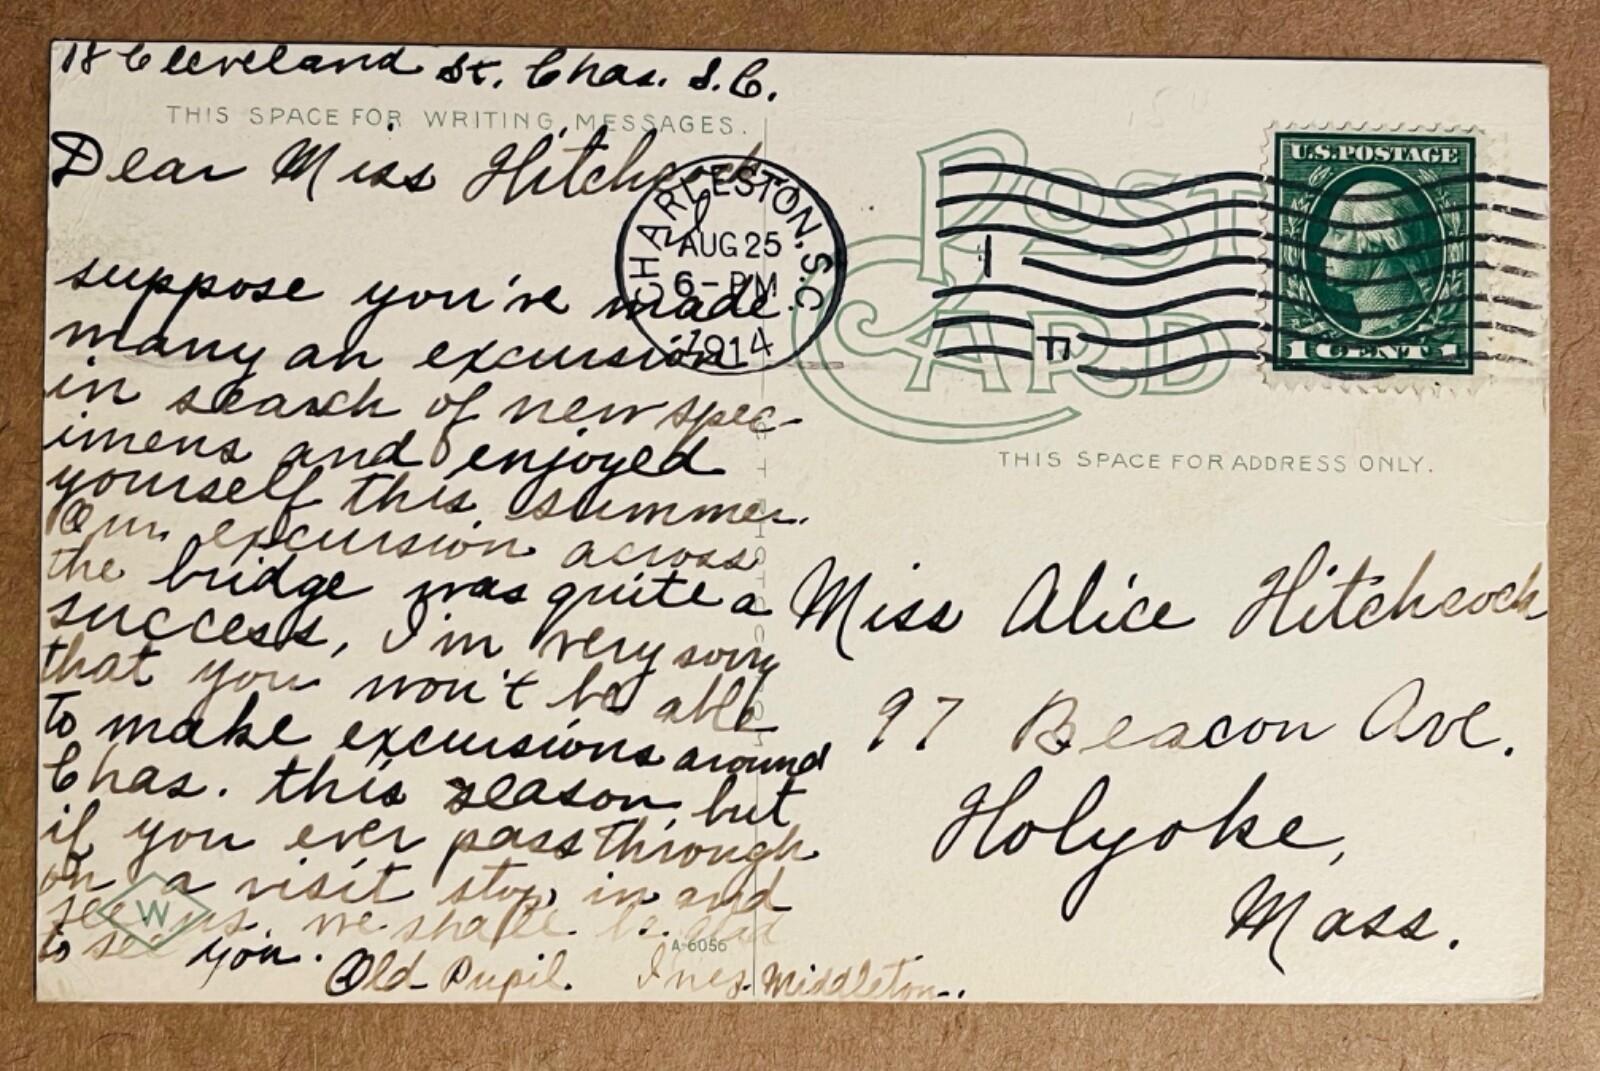 18 Cleveland St. Chas. S.C.
THIS SPACE FOR WRITING MESSAGES.
Dear Miss Hitchcock
I
suppose you've made
many an excursion
in search of new spec-
imens and enjoyed
yourself this summer.
Our excursion across
the bridge was quite a
success, I'm very sorry
that you won't be able
to make excursions around
Chas. this season, but
if you ever pass through
on a visit stop in and
see us. we shall be glad
to see you.
Old Pupil. Ines. Middleton.
W
A-6056
CHARLESTON, S.C.
AUG 25
6-PM
1914
POST
CARD
1
F
U.S. POSTAGE
1 CENT 1
THIS SPACE FOR ADDRESS ONLY.
Miss Alice Hitchcock
97 Beacon Ave.
Holyoke,
Mass.